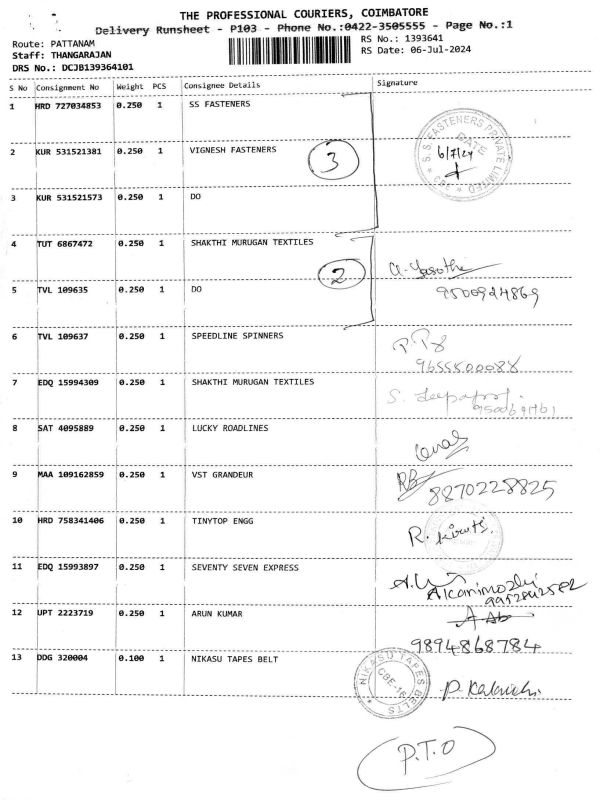 THE PROFESSIONAL COURIERS, COIMBATORE
Delivery Runsheet - P103 - Phone No.:0422-3505555 - Page No.:1
Route: PATTANAM
RS No.: 1393641
Staff: THANGARAJAN
RS Date: 06-Jul-2024
DRS No.: DCJB139364101
S No Consignment No Weight PCS Consignee Details Signature
1 HRD 727034853 0.250 1 SS FASTENERS
S. S. FASTENERS PRIVATE LIMITED CBE DATE
6/7/24
2 KUR 531521381 0.250 1 VIGNESH FASTENERS
3
3 KUR 531521573 0.250 1 DO
4 TUT 6867472 0.250 1 SHAKTHI MURUGAN TEXTILES
2
5 TVL 109635 0.250 1 DO
9500924869
6 TVL 109637 0.250 1 SPEEDLINE SPINNERS
9655500088
7 EDQ 15994309 0.250 1 SHAKTHI MURUGAN TEXTILES
8 SAT 4095889 0.250 1 LUCKY ROADLINES
9 MAA 109162859 0.250 1 VST GRANDEUR
8870228825
10 HRD 758341406 0.250 1 TINYTOP ENGG
11 EDQ 15993897 0.250 1 SEVENTY SEVEN EXPRESS
12 UPT 2223719 0.250 1 ARUN KUMAR
9894868784
13 DDG 320004 0.100 1 NIKASU TAPES BELT
NIKASU TAPES BELTS CBE-16
P.T.O